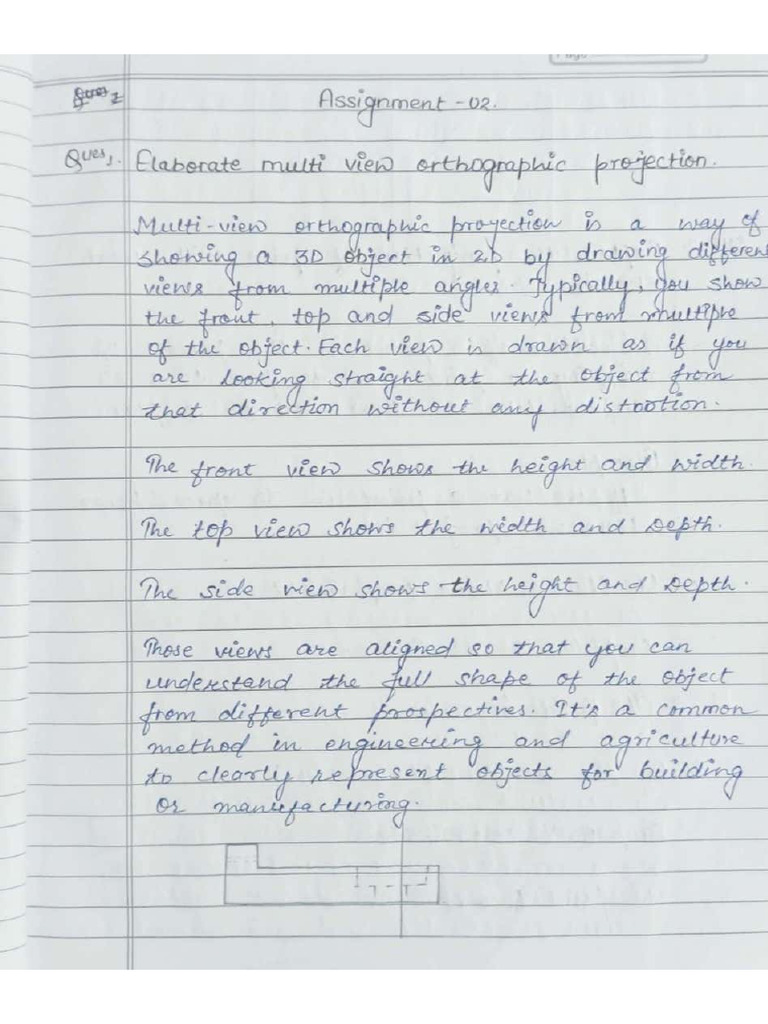 Assignment - 02.
Ques 1. Elaborate multi view orthographic projection.
Multi-view orthographic proyection is a way of
showing a 3D object in 2D by drawing differen
views from multiple angles. Typically, you show
the front, top and side views from multiple
of the object. Each view is drawn as if you
are looking straight at the object from
that direction without any distortion.
The front view shows the height and width.
The top view shows the width and Depth.
The side view shows the height and Depth.
Those views are aligned so that you can
understand the full shape of the object
from different prospectives. It's a common
method in engineering and agriculture
to clearly represent objects for building
or manufacturing.